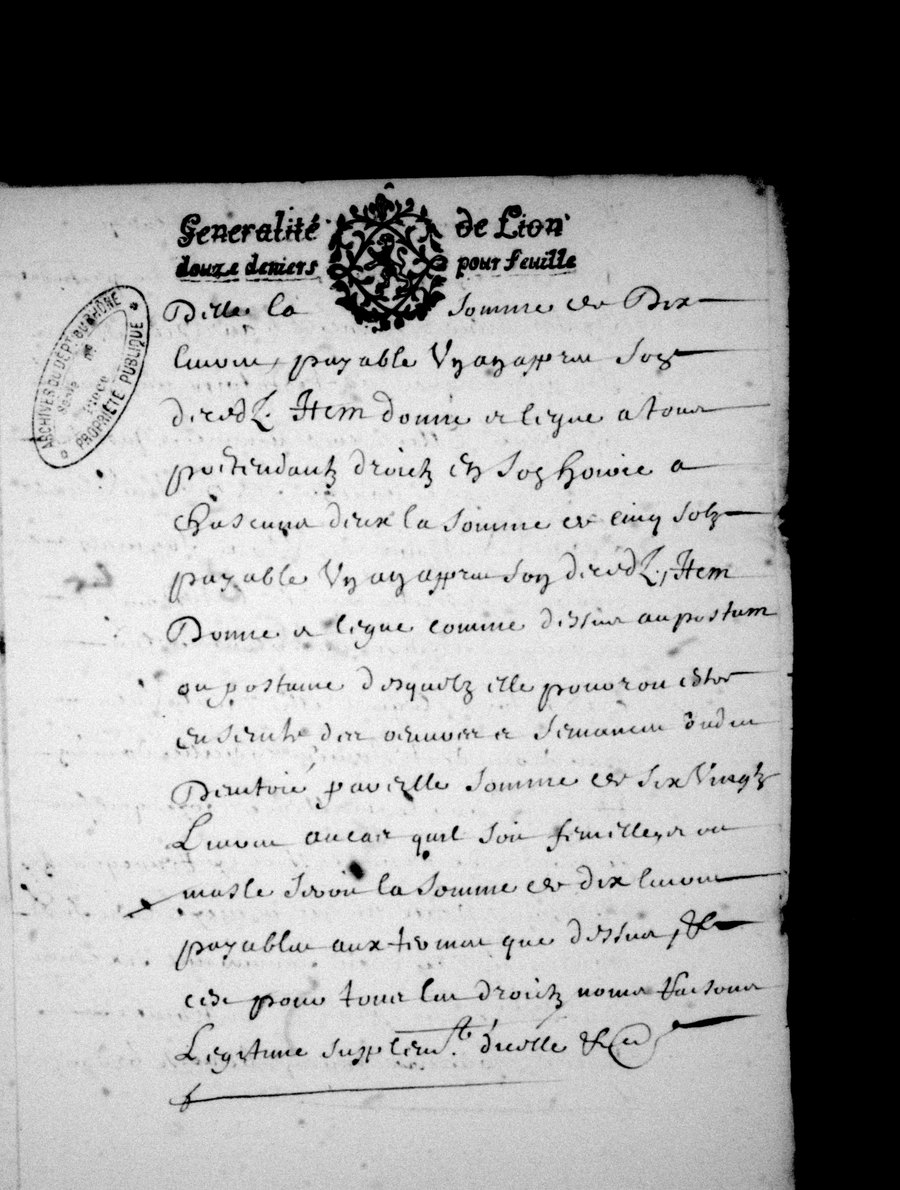 Generalité de Lion
douze deniers pour feuille
ARCHIVES DU DEPT. DU RHÔNE
PROPRIÉTÉ PUBLIQUE
Dille la somme de Dix
livres payable Ung an apres Son
deced. Item donne et legue a tous
pretendantz droictz en son hoirie a
Chascung deux la somme de cinq solz
payable Ung an apres son deced. Item
Donne et legue comme dessus au postum
ou postume desquelz elle pourroit estre
enseinte
pareille somme de six Vingtz
Livres au cas quil soit fille et ou
masle seroit la somme de dix livres
payables aux termes que dessus &
ce pour tous les droictz noms raisons
Legitime supplemt. d'icelle &